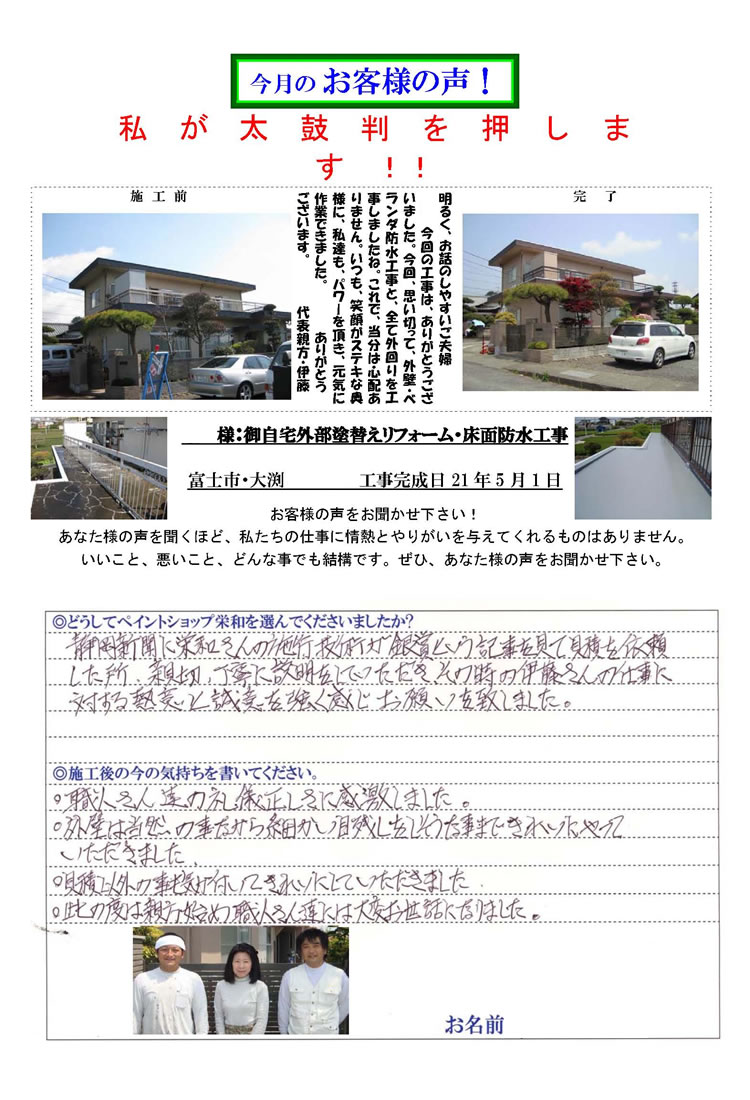 今月の お客様の声！
私が太鼓判を押しま
す!!
施工前
明るく、お話のしやすいご夫婦
今回の工事は、ありがとうござ
いました。今回、思い切って、外壁・ベ
ランダ防水工事と、全て外回りを工
事しましたね。これで、当分は心配あ
りません。いつも、笑顔がステキな奥
様に、私達も、パワーを頂き、元気に
作業できました。 ありがとう
ございます。 代表親方・伊藤
完了
様：御自宅外部塗替えリフォーム・床面防水工事
富士市・大渕 工事完成日21年5月1日
お客様の声をお聞かせ下さい！
あなた様の声を聞くほど、私たちの仕事に情熱とやりがいを与えてくれるものはありません。
いいこと、悪いこと、どんな事でも結構です。ぜひ、あなた様の声をお聞かせ下さい。
◎どうしてペイントショップ栄和を選んでくださいましたか?
静岡新聞に栄和さんの施行技術が銀賞という記事を見て見積を依頼
した所、親切、丁寧に説明をしていただき その時の伊藤さんの仕事に
対する熱意と誠意を強く感じお願いを致しました。
◎施工後の今の気持ちを書いてください。
○職人さん達の礼儀正しさに感激しました。
○外壁は当然の事ながら細かい見残しをしそうな事まできれいにやって
いただきました
○見積以外の事も気が付いてきれいにしていただきました
○此の度は親方始め職人さん達には大変お世話になりました。
お名前